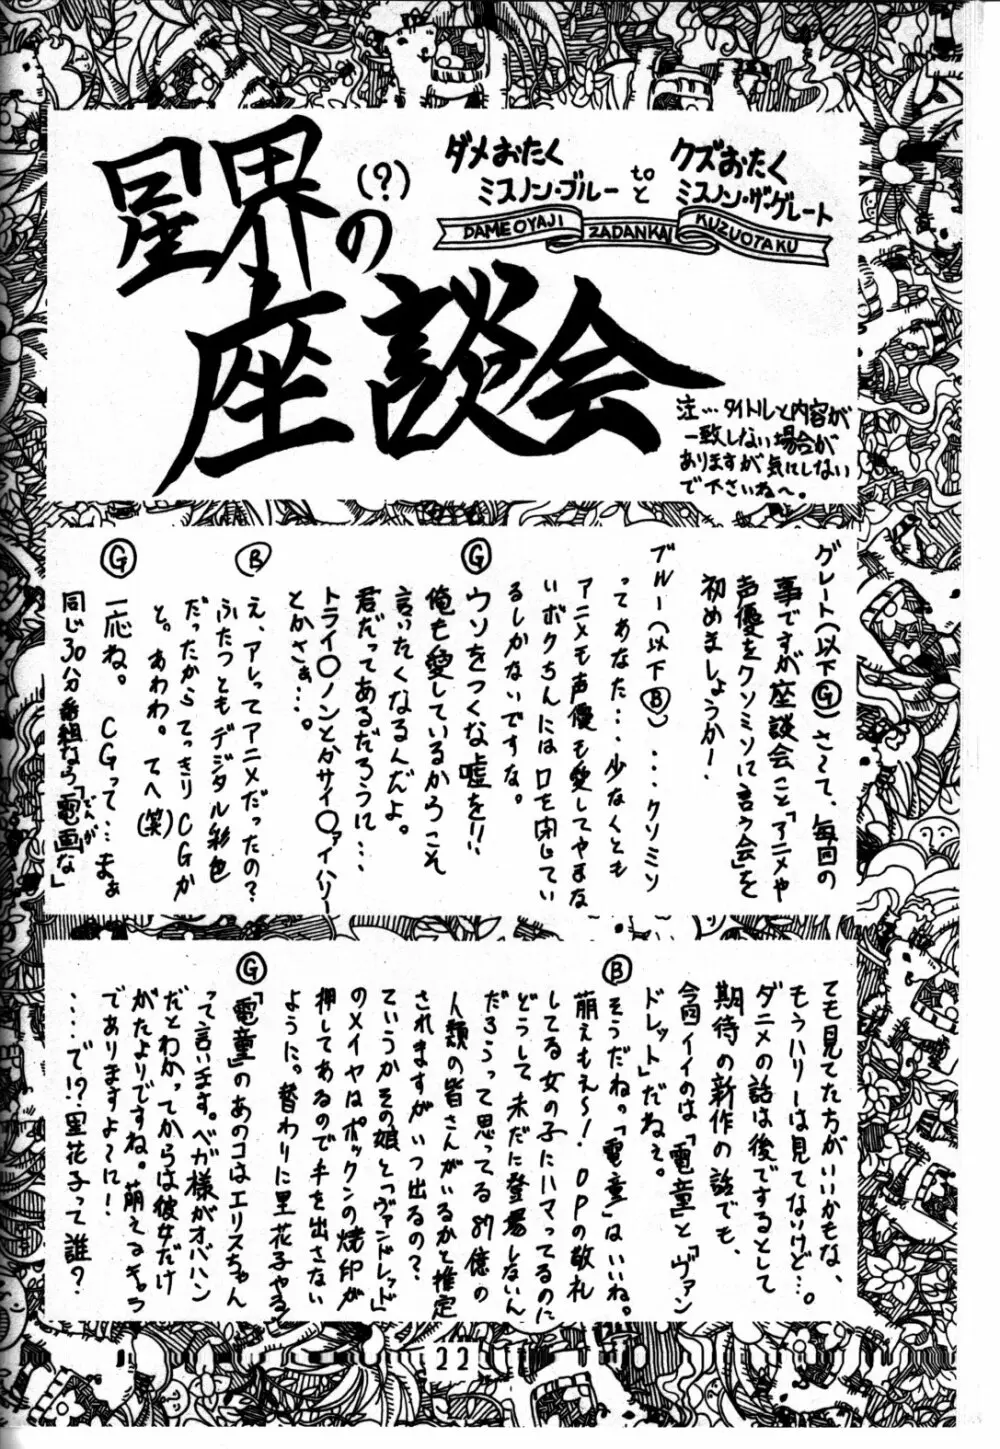 星界の(?)
座談会
ダメおたく
ミスノン・ブルー
toと
クズおたく
ミスノン・ザ・グレート
DAMEOYAJI ZADANKAI KUZUOTAKU
注…タイトルと内容が
一致しない場合が
ありますが気にしない
で下さいね〜。
グレート(以下Ⓖ)さ〜て、毎回の
事ですが座談会こと「アニメや
声優をクソミソに言う会」を
初めましょうか!
ブルー(以下Ⓑ)‥‥クソミソ
ってあなた…少なくとも
アニメも声優も愛してやまな
いボクちんには口を閉じてい
るしかないですな。
Ⓖ ウソをつくな嘘を!!
俺も愛しているからこそ
言いたくなるんだよ。
君だってあるだろうに…
トライ〇ノンとかサイ〇ァイハリー
とかさぁ…。
Ⓑ え、アレってアニメだったの?
ふたつともデジタル彩色
だったからてっきりCGか
と。あわわ。てへ(笑)
Ⓖ 一応ね。CGって…まぁ
同じ30分番組なら「電画な」でんが
ても見てた方がいいかもな、
もうハリーは見てないけど…。
ダニメの話は後でするとして
期待の新作の話でも、
今回イイのは「電童」と「ヴァン
ドレット」だねぇ。
Ⓑ そうだねっ「電童」はいいね。
萌えもえ〜!OPの敬礼
してる女の子にハマってるのに
どうして未だに登場しないん
だろうって思ってる87億の
人類の皆さんがいるかと推定
されますがいつ出るの?
ていうかその娘と「ヴァンドレッド」
のメイヤはポックンの焼印が
押してあるので手を出さない
ように。替わりに里花子やる
Ⓖ 「電童」のあのコはエリスちゃん
って言いエます。ベガ様がオバハン
だとわかってからは彼女だけ
がたよりですね。萌えるキャラ
でありますよ〜に!
‥‥で!?里花子って誰?
22